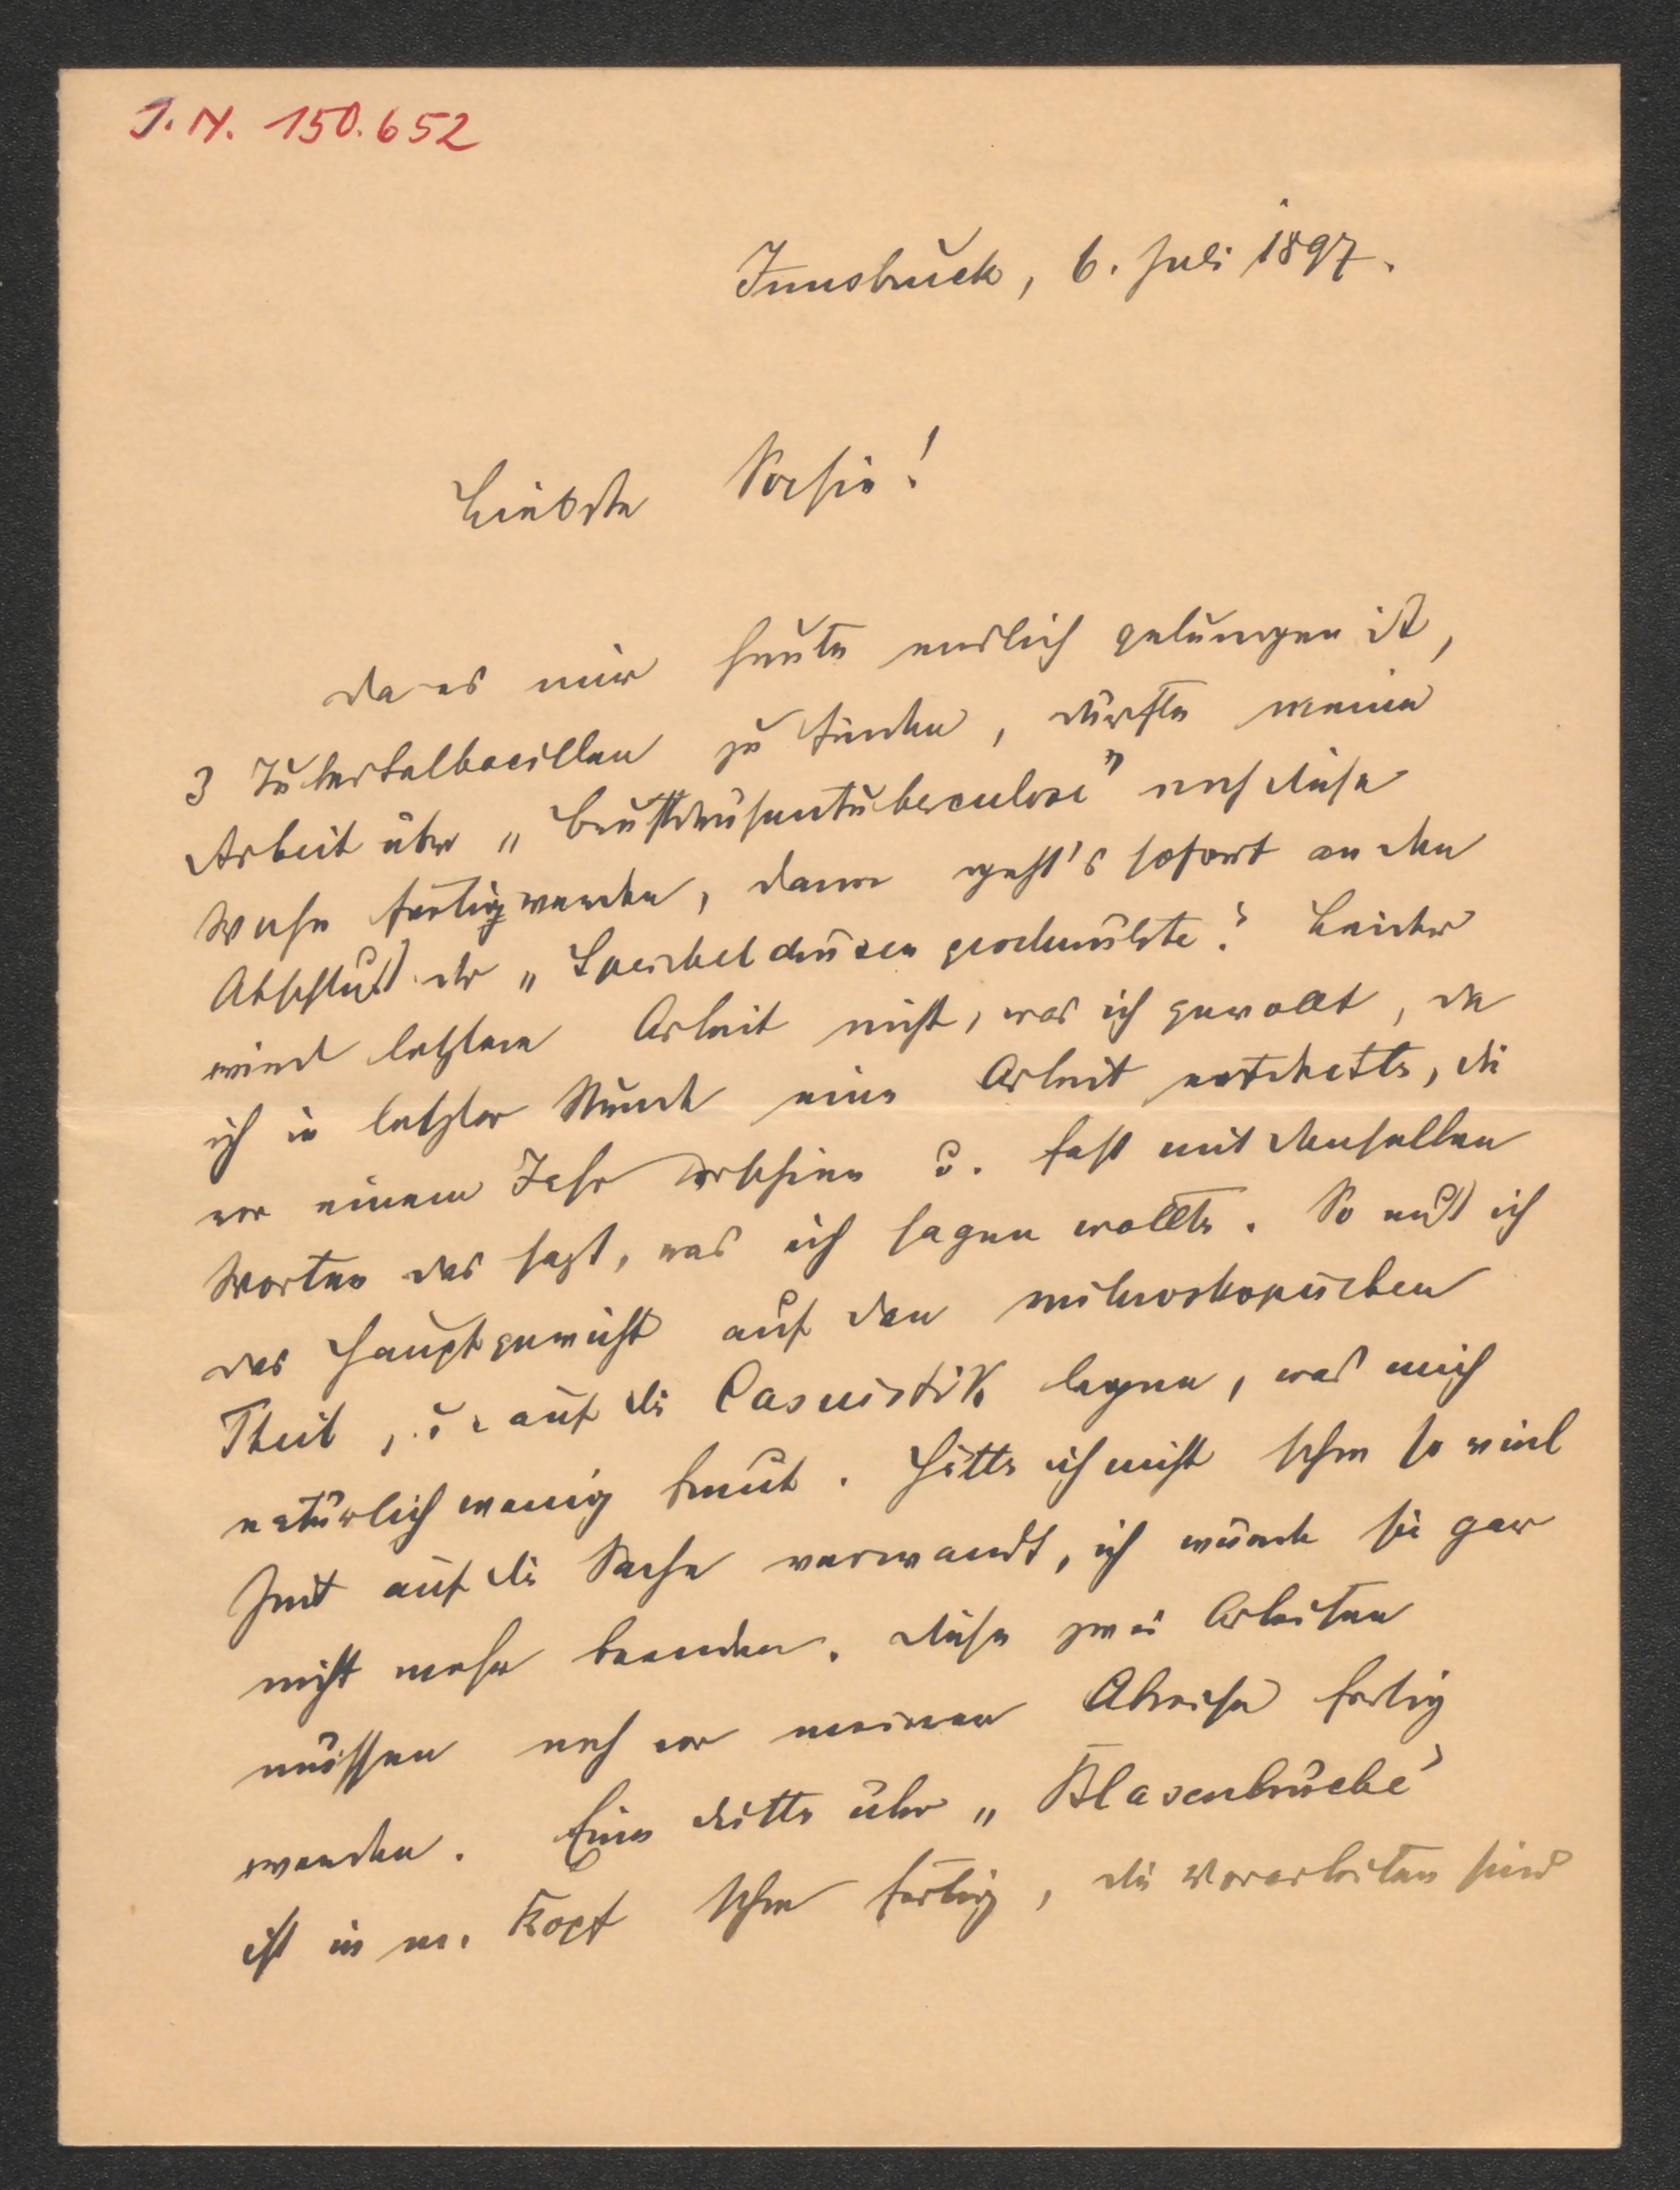 J. N. 150.652
Innsbruck, 6. Juli 1897.
Liebste Sofie!
Da es mir heute endlich gelungen ist,
3 Tuberkelbacillen zu finden, dürfte meine
Arbeit über „Brustdrüsentuberculose" noch diese
Woche fertig werden, dann geht's sofort an den
Abschluß der „Speicheldrüsengeschwülste". Leider
wird letztere Arbeit nicht, was ich gewollt, da
ich in letzter Stunde eine Arbeit entdeckte, die
vor einem Jahr erschien u. fast mit denselben
Worten das sagt, was ich sagen wollte. So muß ich
das Hauptgewicht auf den mikroskopischen
Theil, u. auf die Casuistik legen, was mich
natürlich wenig freut. Hätte ich nicht schon so viel
Zeit auf die Sache verwandt, ich würde sie gar
nicht mehr beenden. Diese zwei Arbeiten
müssen noch vor meiner Abreise fertig
werden. Eine dritte über „Blasenbrüche"
ist in m. Kopf schon fertig, die Vorarbeiten sind